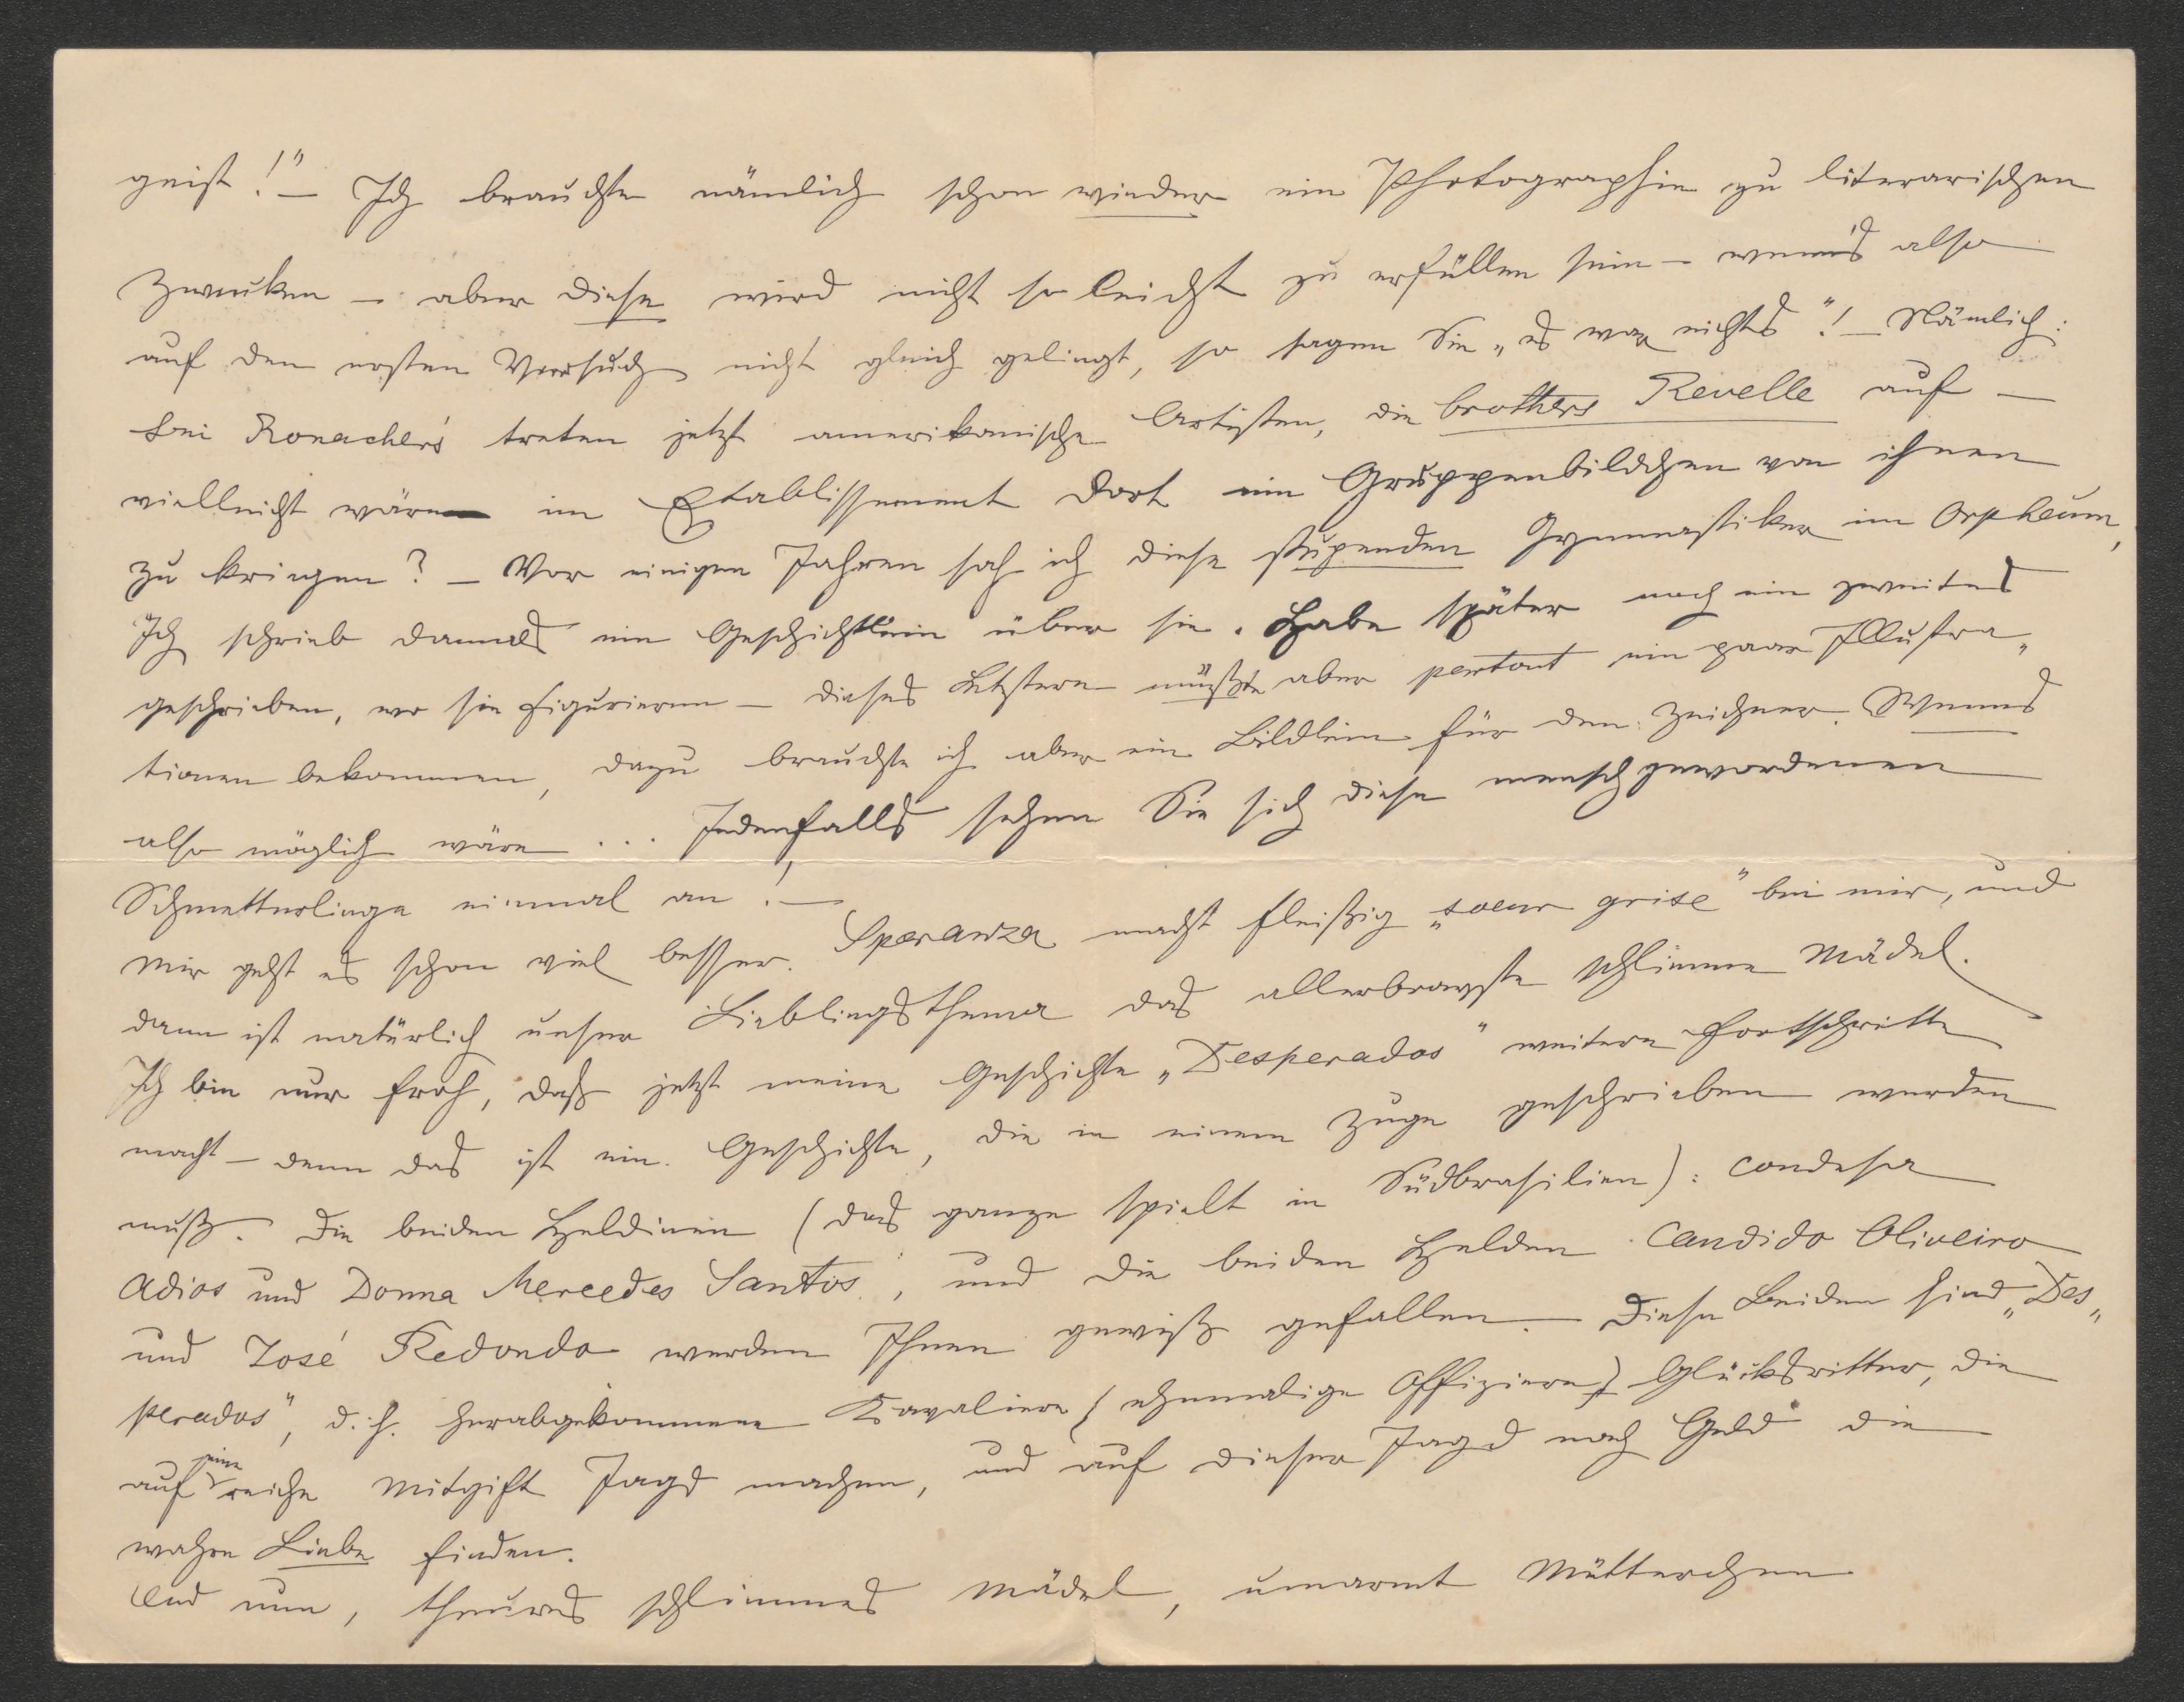 geist!" — Ich brauchte nämlich schon wieder ein Photographie zu literarischen
Zwecken — aber diese wird nicht so leicht zu erfüllen sein — wenn's also
auf den ersten Versuch nicht gleich gelingt, so sagen Sie „es war nichts"! — Nämlich:
bei Ronacher's treten jetzt amerikanische Artisten, die brothers Revelle auf —
vielleicht wäre im Etablissement dort ein Gruppenbildchen von ihnen
zu kriegen? — Vor einigen Jahren sah ich diese stupenden Gymnastiker im Orpheum,
Ich schrieb damals ein Geschichtlein über sie. Habe später noch ein zweites
geschrieben, wo sie figurieren — dieses Letztere müßte aber partout ein paar Illustra„
tionen bekommen, dazu brauchte ich aber ein Bildlein für den Zeichner. Wenns
also möglich wäre ... Jedenfalls sehen Sie sich diese menschgewordenen
Schmetterlinge einmal an! —
Mir geht es schon viel besser. Speranza macht fleißig „soeur grise" bei mir, und
dann ist natürlich unser Lieblingsthema das allerbravste schlimme Mädel.
Ich bin nur froh, daß jetzt meine Geschichte „Desperados" weitere Fortschritte
macht — denn das ist ein Geschichte, die in einem Zuge geschrieben werden
muß. Die beiden Heldinen (das ganze spielt in Südbrasilien): Condesa
Adios und Donna Mercedes Santos, und die beiden Helden Candido Oliveiro
und José Redondo werden Ihnen gewiß gefallen. — Diese Beiden sind „Des„
perados", d. h. herabgekommene Kavaliere (ehemalige Offiziere) Glücksritter, die
auf eine reiche Mitgift Jagd machen, und auf dieser Jagd nach Geld die
wahre Liebe finden.
Und nun, theures schlimmes Mädel, umarmt Mütterchen